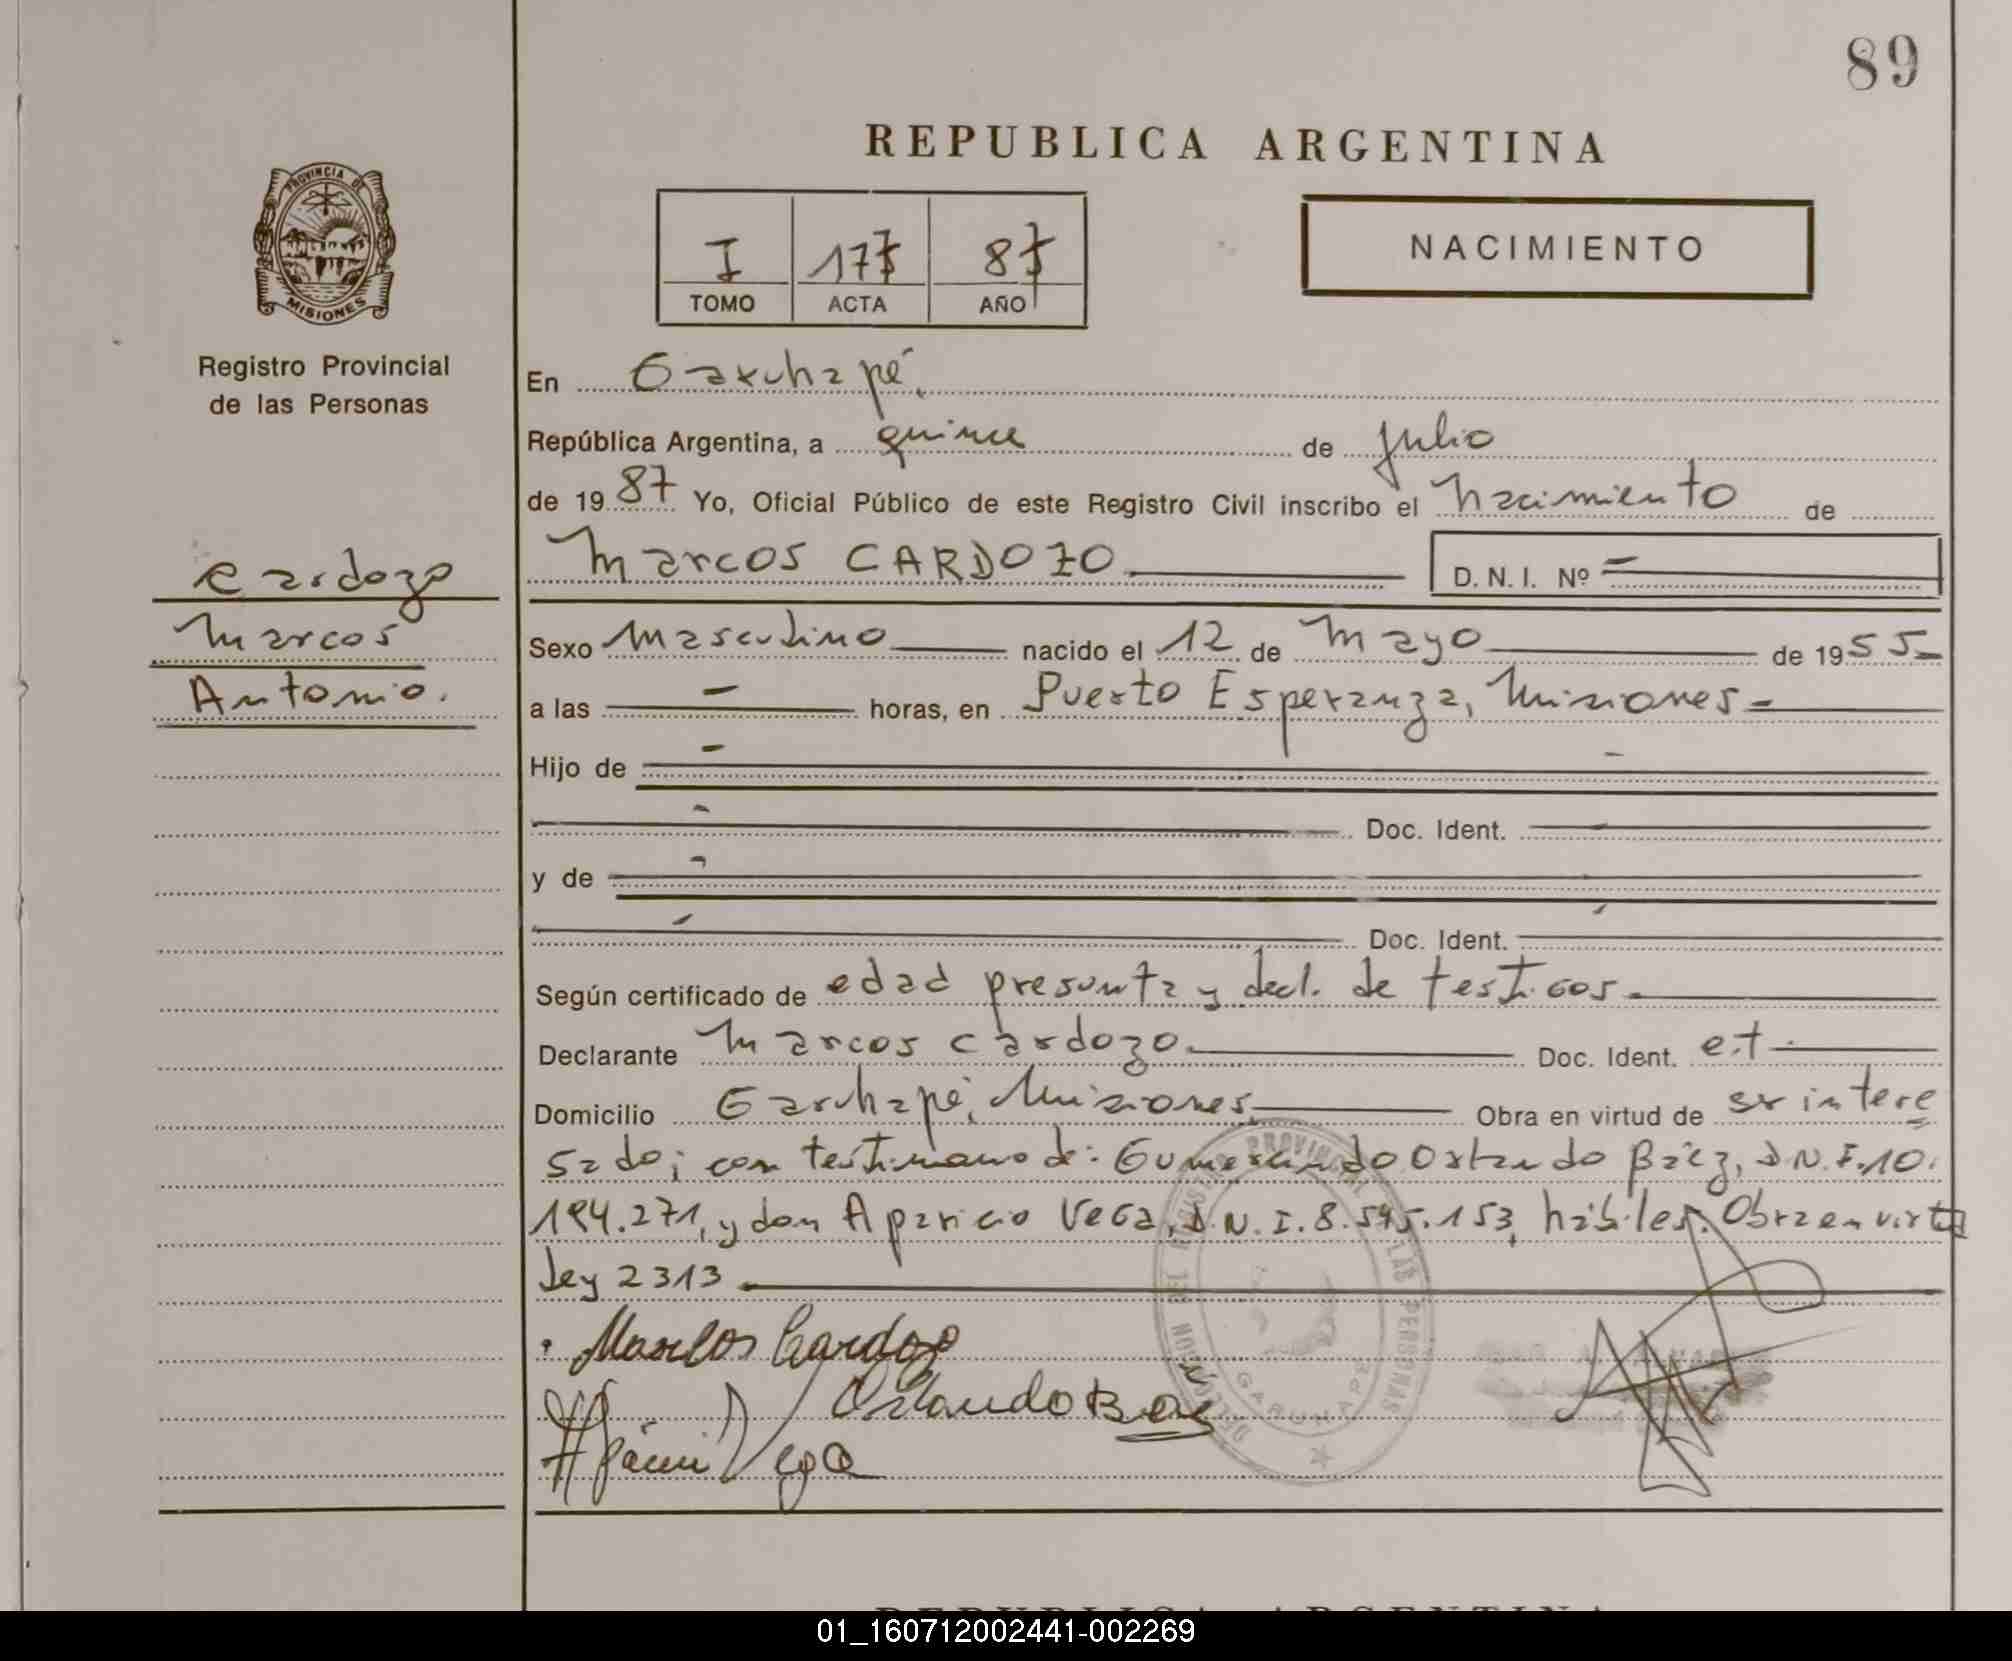 89
REPUBLICA ARGENTINA
PROVINCIA DE
MISIONES
I 177 87
TOMO ACTA AÑO
NACIMIENTO
Registro Provincial
de las Personas
En Garuhapé,
República Argentina, a quince de julio
de 1987 Yo, Oficial Público de este Registro Civil inscribo el nacimiento de
Marcos CARDOZO
D. N. I. Nº —
Cardozo
Marcos
Antonio.
Sexo Masculino nacido el 12 de Mayo de 1955
a las — horas, en Puerto Esperanza, Misiones
Hijo de
Doc. Ident.
y de
Doc. Ident.
Según certificado de edad presunta y decl. de testigos.
Declarante Marcos Cardozo Doc. Ident. e.t.
Domicilio Garuhapé, Misiones Obra en virtud de ser intere
sado; con testimonio de: Gumercindo Orlando Báez, D.N.I. 10.
194.271, y don Aparicio Vega, D.N.I. 8.545.153, hábiles. Obra en virtu
Ley 2313
Marcos Cardozo
Orlando Baez
Vega
REGISTRO PROVINCIAL DE LAS PERSONAS
GARUHAPE
REPUBLICA ARGENTINA
01_160712002441-002269